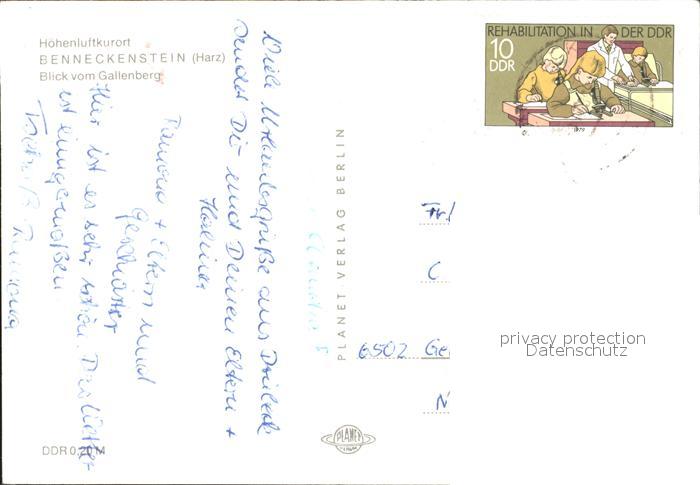 Höhenluftkurort
BENNECKENSTEIN (Harz)
Blick vom Gallenberg
REHABILITATION IN DER DDR
10
DDR
1979
Viele Urlaubsgrüße aus
sendet Dir und Deinen Eltern +
Ramona + Eltern und
Geschwister
Hier ist es sehr schön. Das
ist einigermaßen.
Tschüß Ramona
PLANET-VERLAG BERLIN
6502 Ge
C
N
PLANET
DDR 0,20 M
privacy protection
Datenschutz